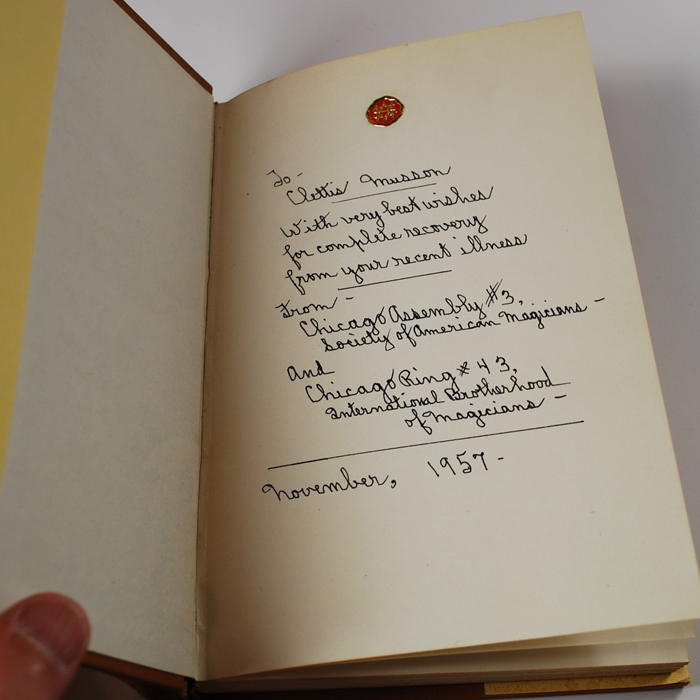 To-
Clettis Musson
With very best wishes
for complete recovery
from your recent illness
From -
Chicago Assembly #3,
Society of American Magicians -
And
Chicago Ring # 43,
International Brotherhood
of Magicians -
November, 1957-